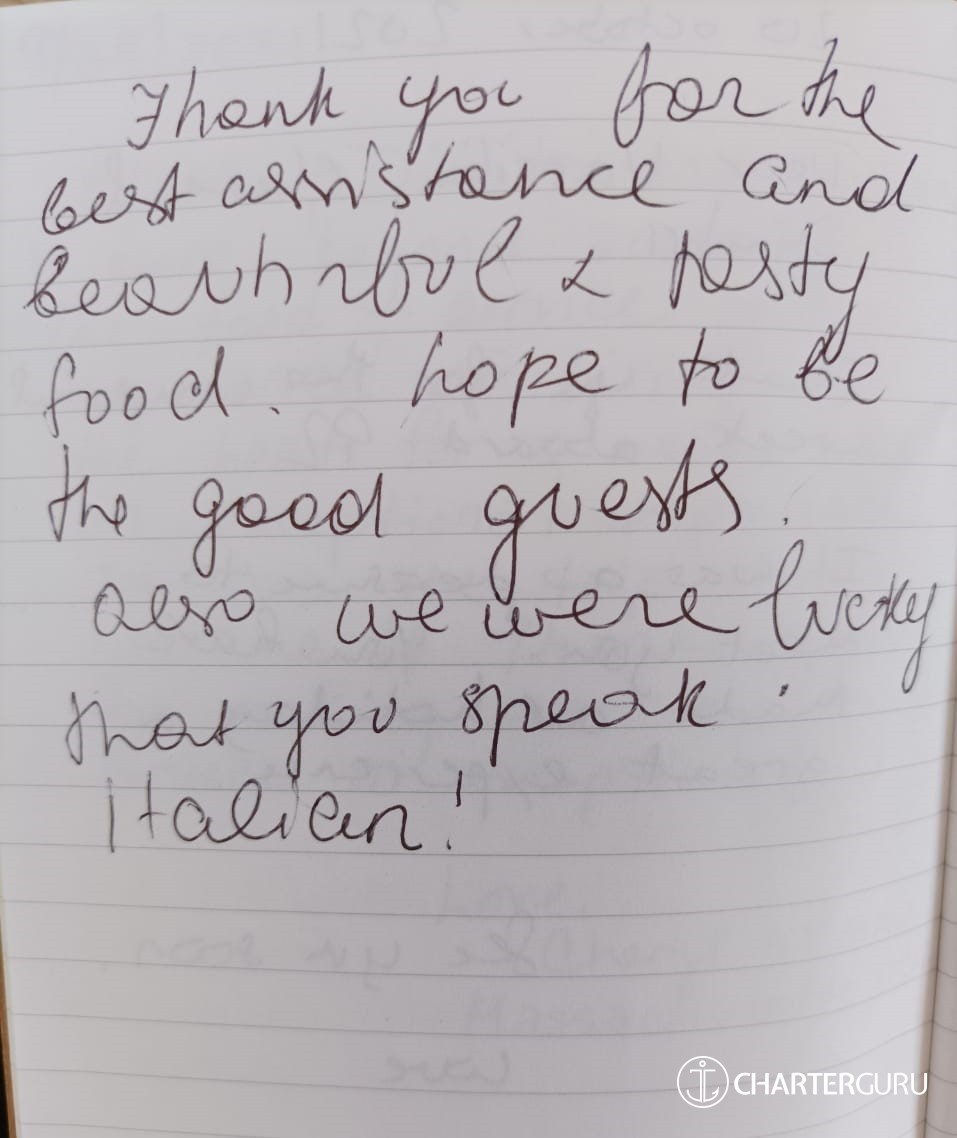 Thank you for the
best assistance and
beautiful & tasty
food. hope to be
the good guests.
also we were lucky
that you speak
italian!
CHARTERGURU